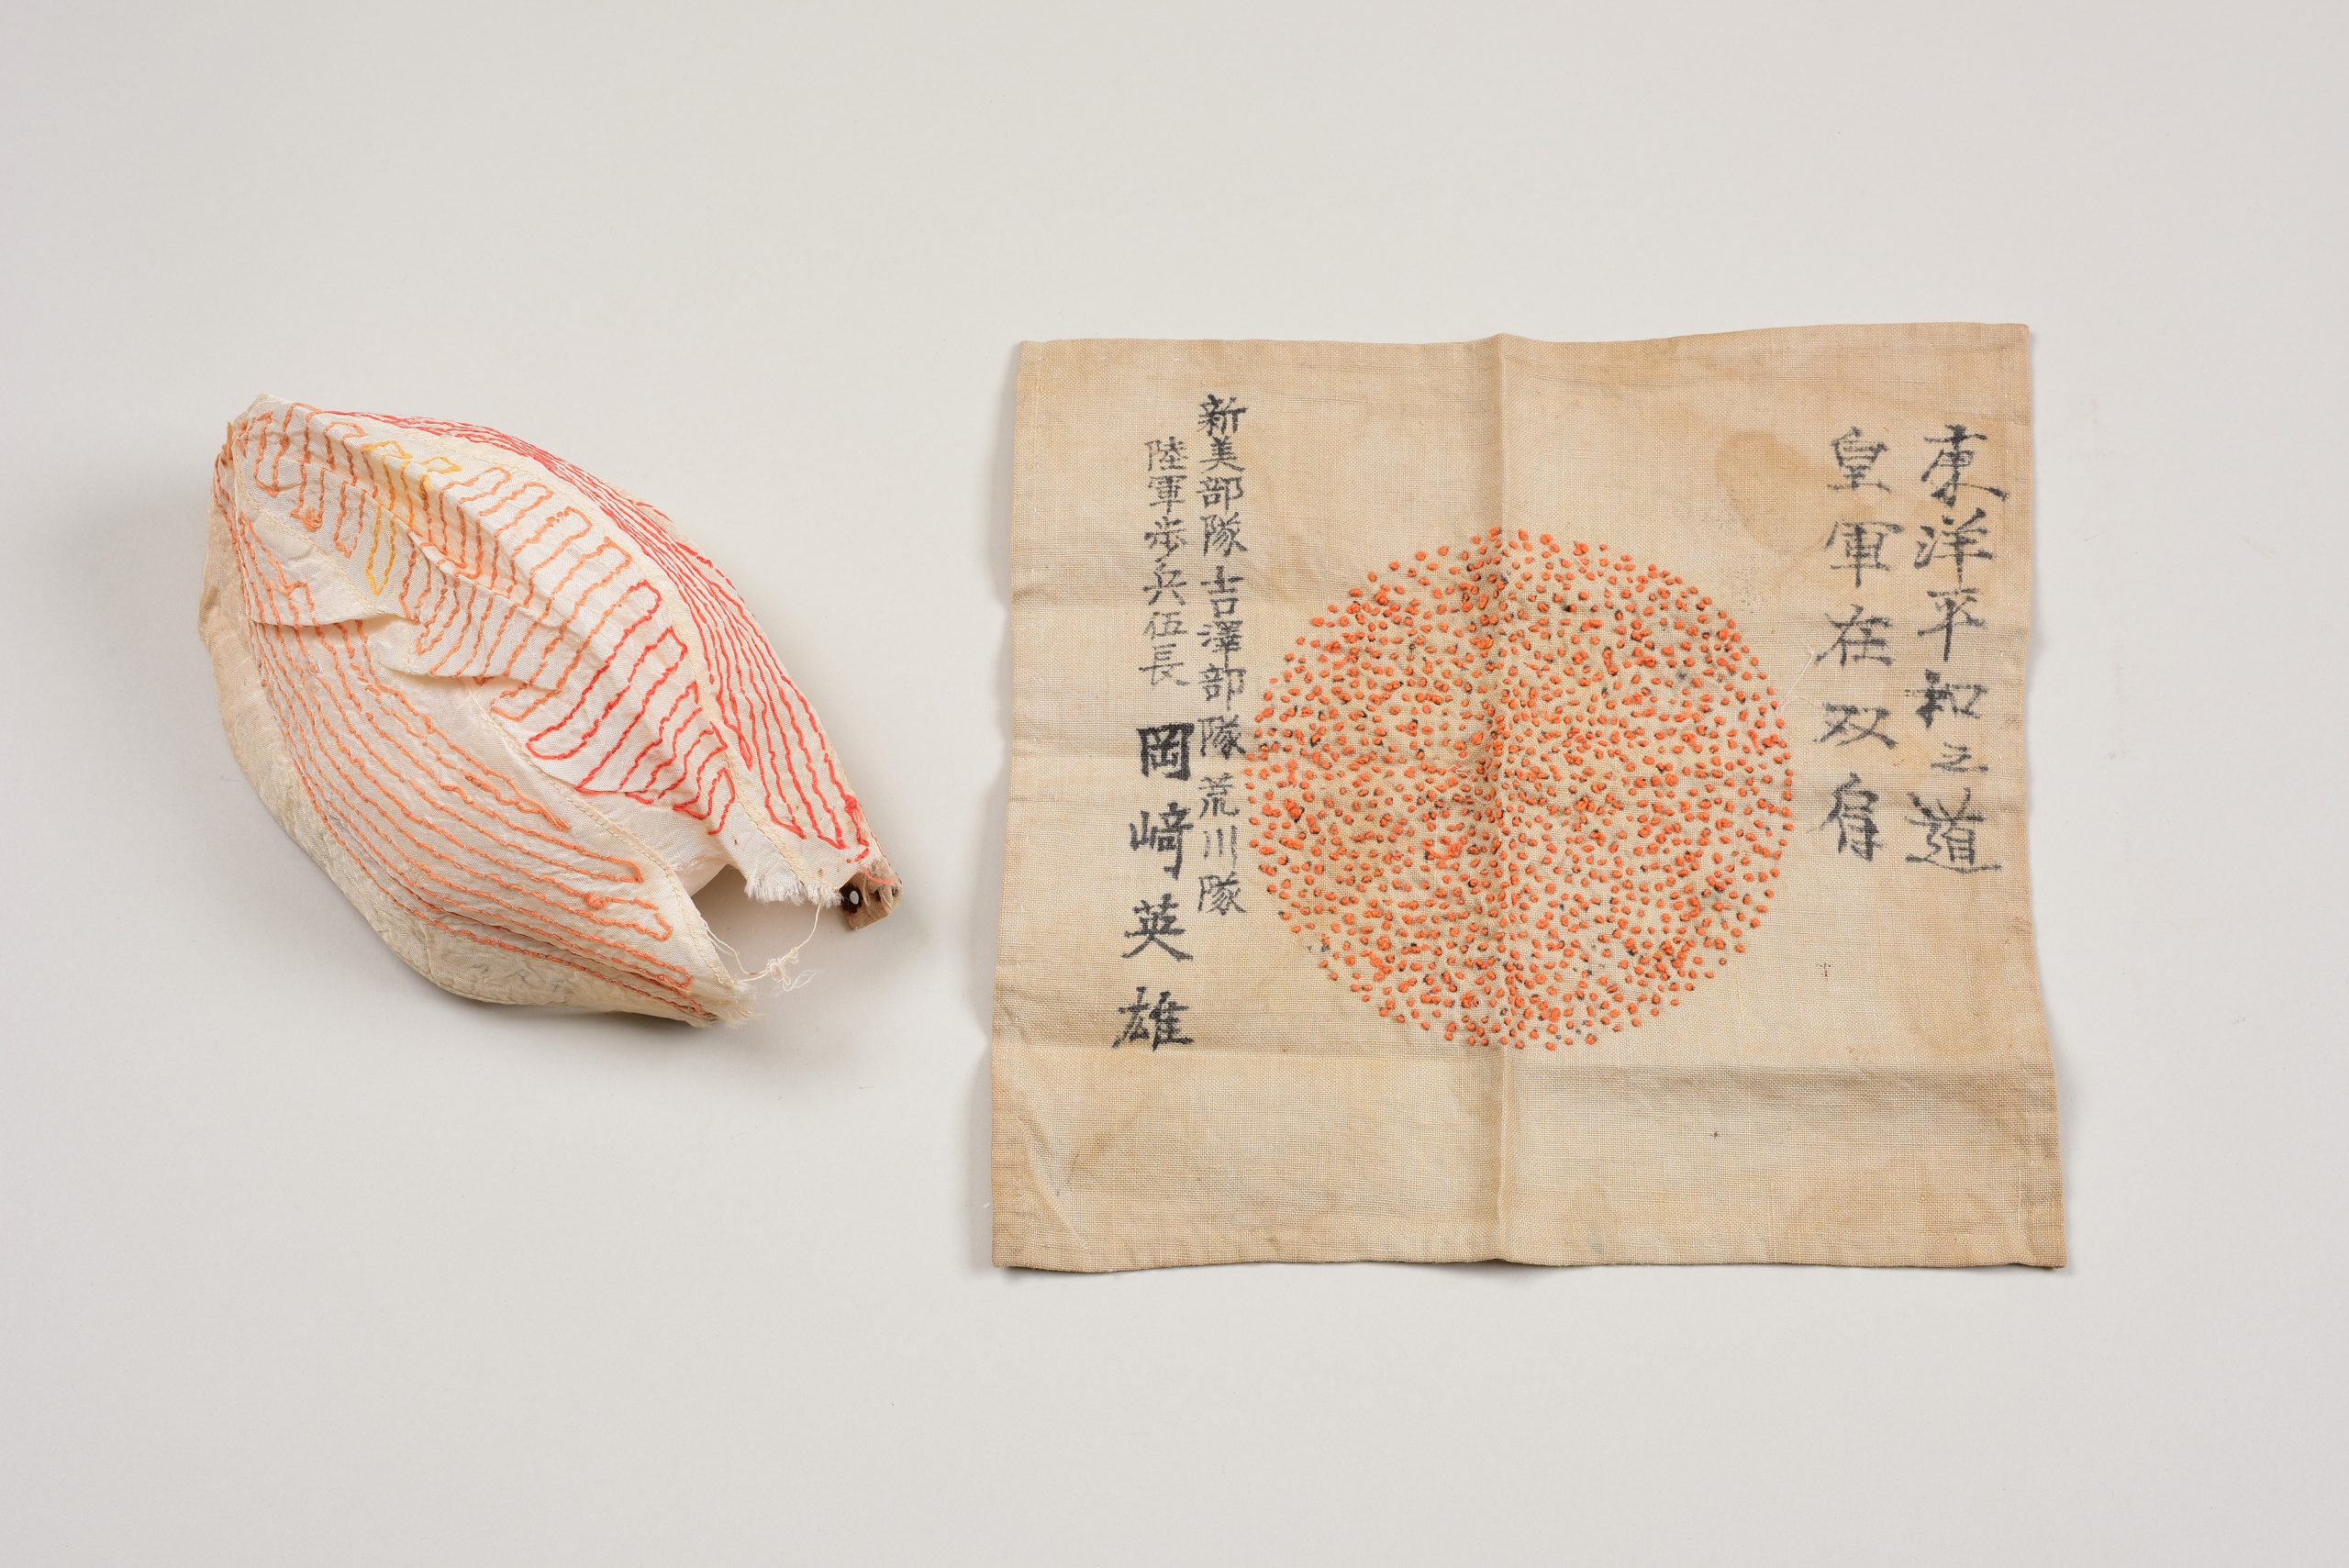 東洋平和之道
皇軍在双肩
新美部隊吉澤部隊荒川隊
陸軍歩兵伍長 岡﨑英雄